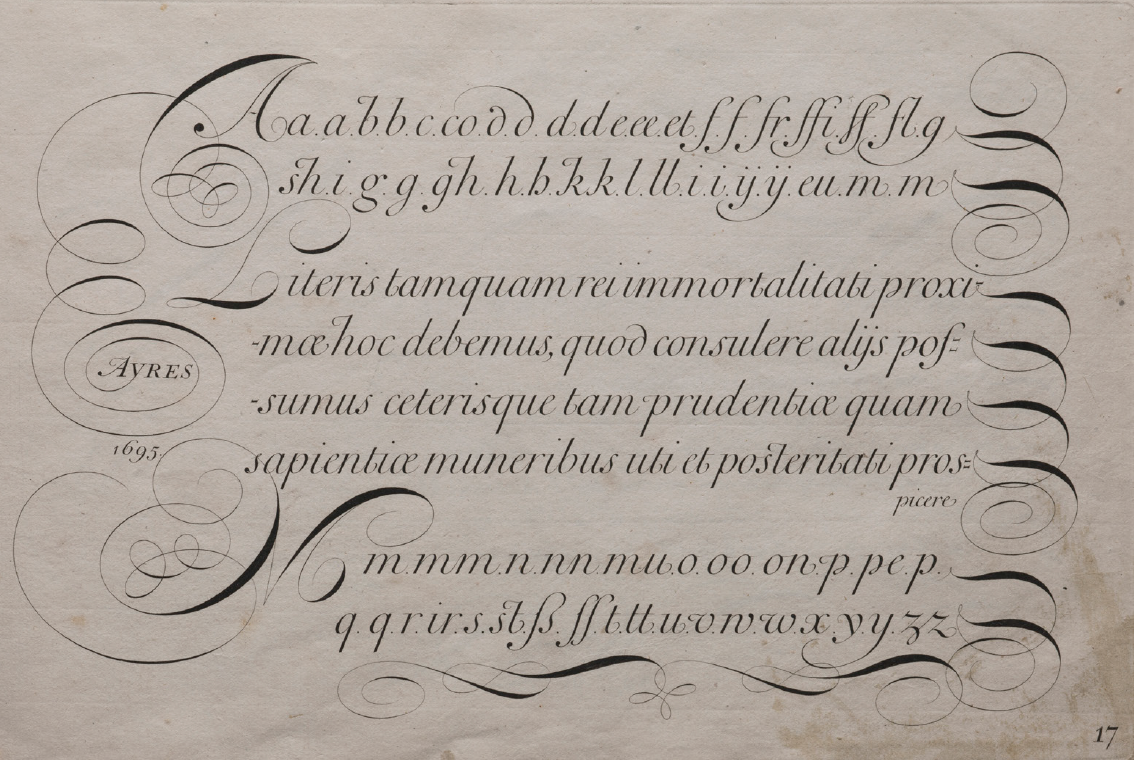 Aa.a.b.b.c.co.d d.d.d.e.ee.et.ſ.f.fr.ffi.ff.fl.g
sh.i.g.g.gh.h.h.k.k.l.ll.i.i.ij.ij.eu.m.m
Literis tamquam rei immortalitati proxi-
-mæ hoc debemus, quod consulere alijs poſ=
-sumus ceterisque tam prudentiæ quam
sapientiæ muneribus uti et posteritati pros=
picere
AVRES
1695.
M m.m.m.n.nn.mu.o.oo.on.p.pe.p.
q.q.r.ir.s.st.ß.ſſ.t.tt.u.v.w.w.x.y.y.zz
17